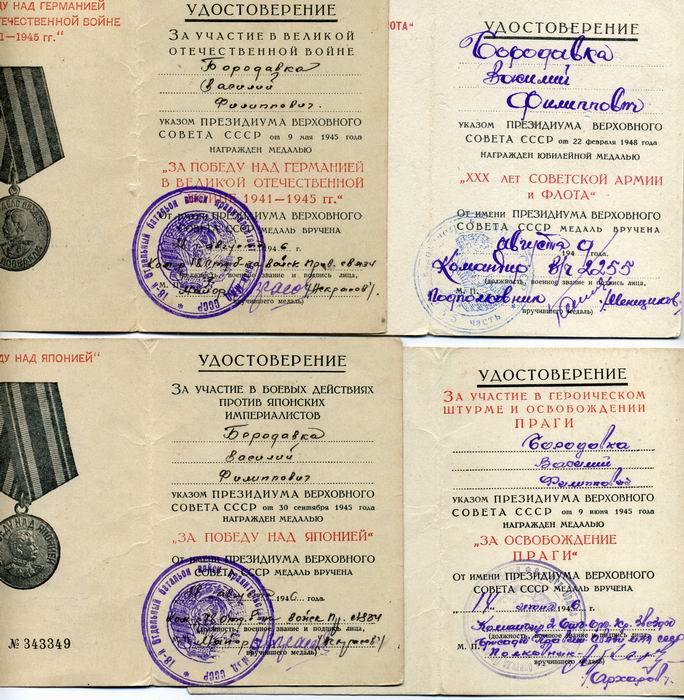 ДУ НАД ГЕРМАНИЕЙ
ОТЕЧЕСТВЕННОЙ ВОЙНЕ
1—1945 гг."
УДОСТОВЕРЕНИЕ
ЗА УЧАСТИЕ В ВЕЛИКОЙ
ОТЕЧЕСТВЕННОЙ ВОЙНЕ
Бородавка
Василий
Филиппович
УКАЗОМ ПРЕЗИДИУМА ВЕРХОВНОГО
СОВЕТА СССР от 9 мая 1945 года
НАГРАЖДЕН МЕДАЛЬЮ
„ЗА ПОБЕДУ НАД ГЕРМАНИЕЙ
В ВЕЛИКОЙ ОТЕЧЕСТВЕННОЙ
1941—1945 гг."
От имени ПРЕЗИДИУМА ВЕРХОВНОГО
СОВЕТА СССР МЕДАЛЬ ВРУЧЕНА
августа 1946
войск Прав. связи
(должность, военное звание и подпись лица,
М. П. Майор (Некрасов)
вручившего медаль)
18-й Отдельный батальон войск
ОТА"
УДОСТОВЕРЕНИЕ
Бородавка
Василий
Филиппович
УКАЗОМ ПРЕЗИДИУМА ВЕРХОВНОГО
СОВЕТА СССР от 22 февраля 1948 года
НАГРАЖДЕН ЮБИЛЕЙНОЙ МЕДАЛЬЮ
„XXX ЛЕТ СОВЕТСКОЙ АРМИИ
И ФЛОТА"
От имени ПРЕЗИДИУМА ВЕРХОВНОГО
СОВЕТА СССР МЕДАЛЬ ВРУЧЕНА
августа 1949 года.
Командир в/ч 2255
(должность, военное звание и подпись лица,
М. П.
Подполковник (Меньшиков)
вручившего медаль)
ДУ НАД ЯПОНИЕЙ"
№ 343349
УДОСТОВЕРЕНИЕ
ЗА УЧАСТИЕ В БОЕВЫХ ДЕЙСТВИЯХ
ПРОТИВ ЯПОНСКИХ
ИМПЕРИАЛИСТОВ
Бородавка
Василий
Филиппович
УКАЗОМ ПРЕЗИДИУМА ВЕРХОВНОГО
СОВЕТА СССР от 30 сентября 1945 года
НАГРАЖДЕН МЕДАЛЬЮ
„ЗА ПОБЕДУ НАД ЯПОНИЕЙ"
От имени ПРЕЗИДИУМА ВЕРХОВНОГО
СОВЕТА СССР МЕДАЛЬ ВРУЧЕНА
августа 1946 года.
войск Пр. связи
(должность, военное звание и подпись лица,
Майор (Некрасов)
вручившего медаль)
18-й Отдельный батальон войск
УДОСТОВЕРЕНИЕ
ЗА УЧАСТИЕ В ГЕРОИЧЕСКОМ
ШТУРМЕ И ОСВОБОЖДЕНИИ
ПРАГИ
Бородавка
Василий
Филиппович
УКАЗОМ ПРЕЗИДИУМА ВЕРХОВНОГО
СОВЕТА СССР от 9 июня 1945 года
НАГРАЖДЕН МЕДАЛЬЮ
„ЗА ОСВОБОЖДЕНИЕ
ПРАГИ"
От имени ПРЕЗИДИУМА ВЕРХОВНОГО
СОВЕТА СССР МЕДАЛЬ ВРУЧЕНА
194 года.
Командир 2
(должность, военное звание и подпись лица,
М. П.
Полковник
вручившего медаль)